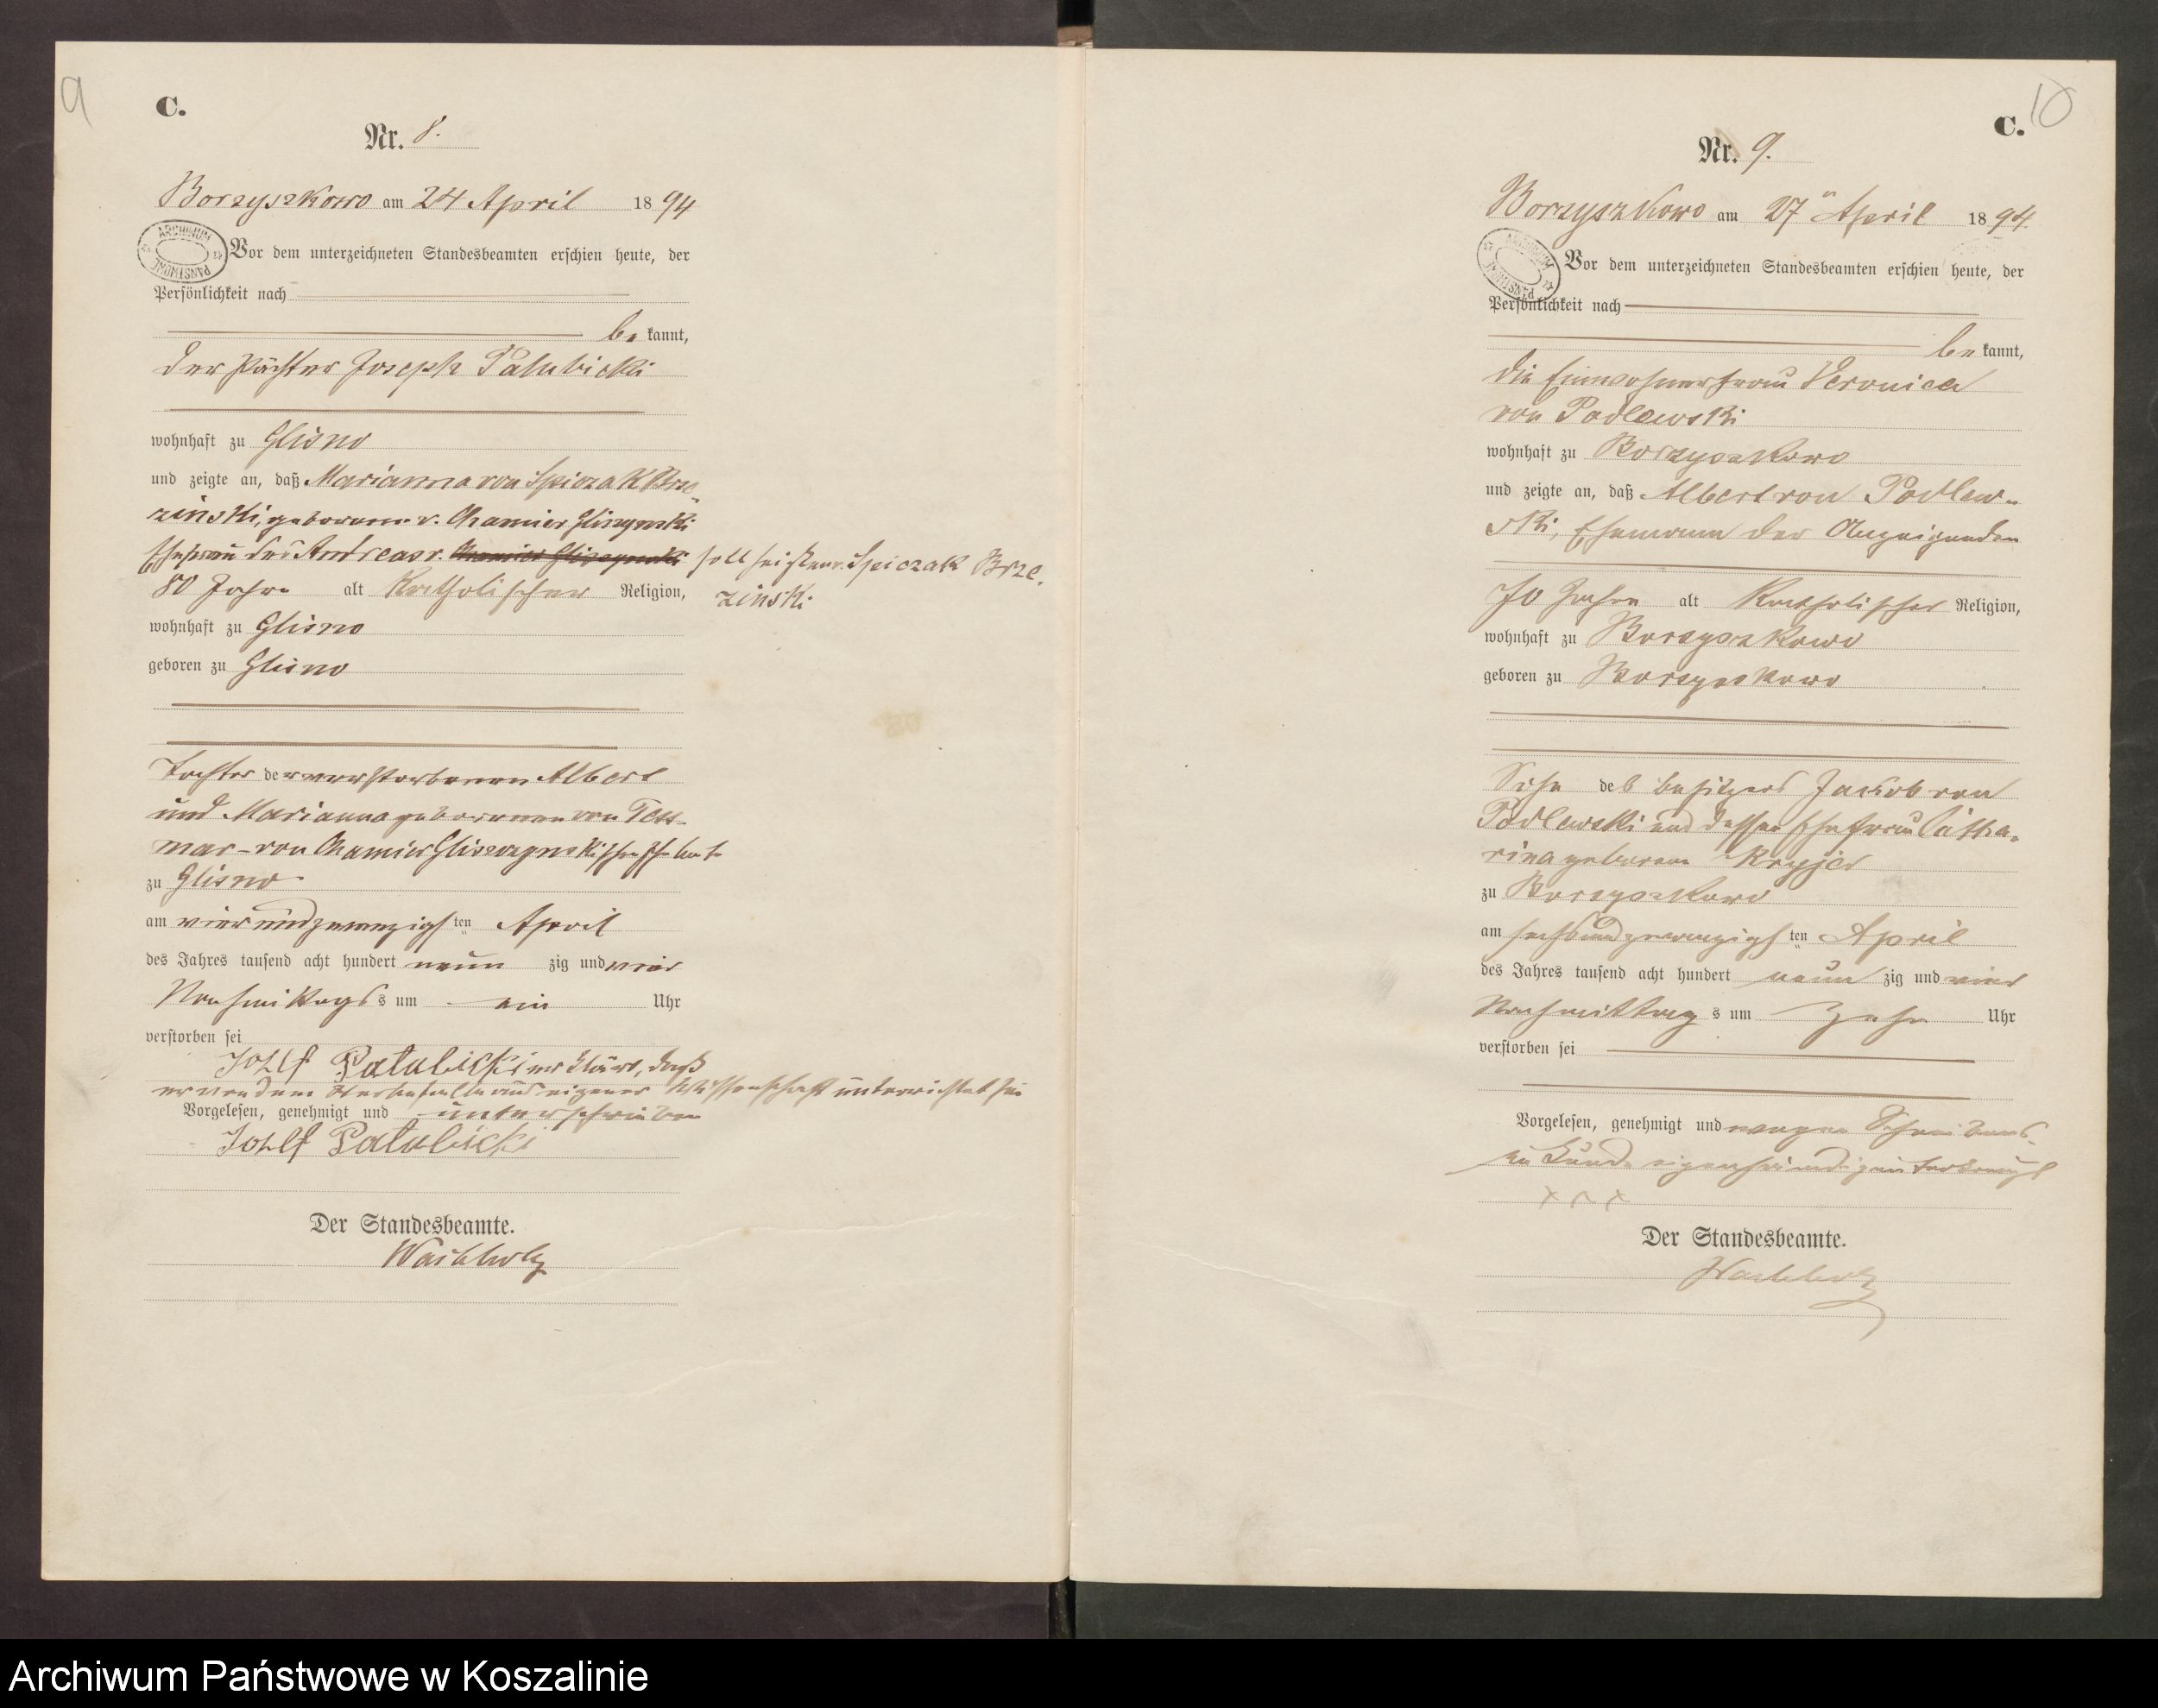 9
C.
Nr. 8.
Borzyszkowo am 24 April 1894
ARCHIWUM PAŃSTWOWE
Vor dem unterzeichneten Standesbeamten erschien heute, der
Persönlichkeit nach
bekannt,
der Pächter Joseph Palubicki
wohnhaft zu Glisno
und zeigte an, daß Marianna von Spiczak Brze-
zinski, geborene v. Chamier Gliszynski
Ehefrau des Andreas v. Chamier Gliszynski soll heißen v. Spiczak Brze.
zinski
80 Jahre alt Katholischer Religion,
wohnhaft zu Glisno
geboren zu Glisno
Tochter der verstorbenen Albert
und Marianna geborenen von Tess-
mar - von Chamier Gliszczynskischen Eheleute
zu Glisno
am vierundzwanzigsten April
des Jahres tausend acht hundert neunzig und vier
Nachmittags um ein Uhr
verstorben sei
Jozef Palubicki erklärt, daß
er von dem Sterbefalle aus eigener Wissenschaft unterrichtet sei
Vorgelesen, genehmigt und unterschrieben
Jozef Palubicki
Der Standesbeamte.
Wachholz
10
C.
Nr. 9.
Borzyszkowo am 27 April 1894.
ARCHIWUM PAŃSTWOWE
Vor dem unterzeichneten Standesbeamten erschien heute, der
Persönlichkeit nach
bekannt,
die Einwohnerfrau Veronica
von Podlewski
wohnhaft zu Borzyszkowo
und zeigte an, daß Albert von Podlew-
ski, Ehemann der Anzeigenden
70 Jahre alt Katholischer Religion,
wohnhaft zu Borzyszkowo
geboren zu Borzyszkowo
Sohn des besitzers Jacob von
Podlewski und dessen Ehefrau Catha-
rina geborene
zu Borzyszkowo
am sechsundzwanzigsten April
des Jahres tausend acht hundert neunzig und vier
Nachmittags um zehn Uhr
verstorben sei
Vorgelesen, genehmigt und wegen Schreibens-
unkunde eigenhändig unterkreuzt
x x x
Der Standesbeamte.
Wachholz
Archiwum Państwowe w Koszalinie